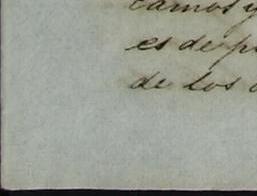 camos y
es de p
de los